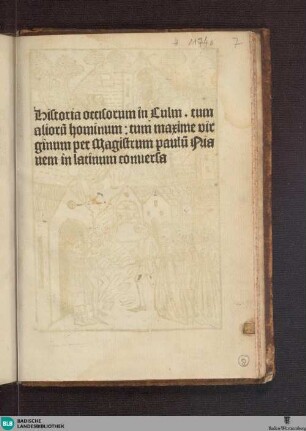 7
Historia occisorum in Culm. tum
aliorū hominum; tum maxime vir
ginum per Magistrum paulū Nia
uem in latinum conuersa
BLB BADISCHE
LANDESBIBLIOTHEK
Baden-Württemberg